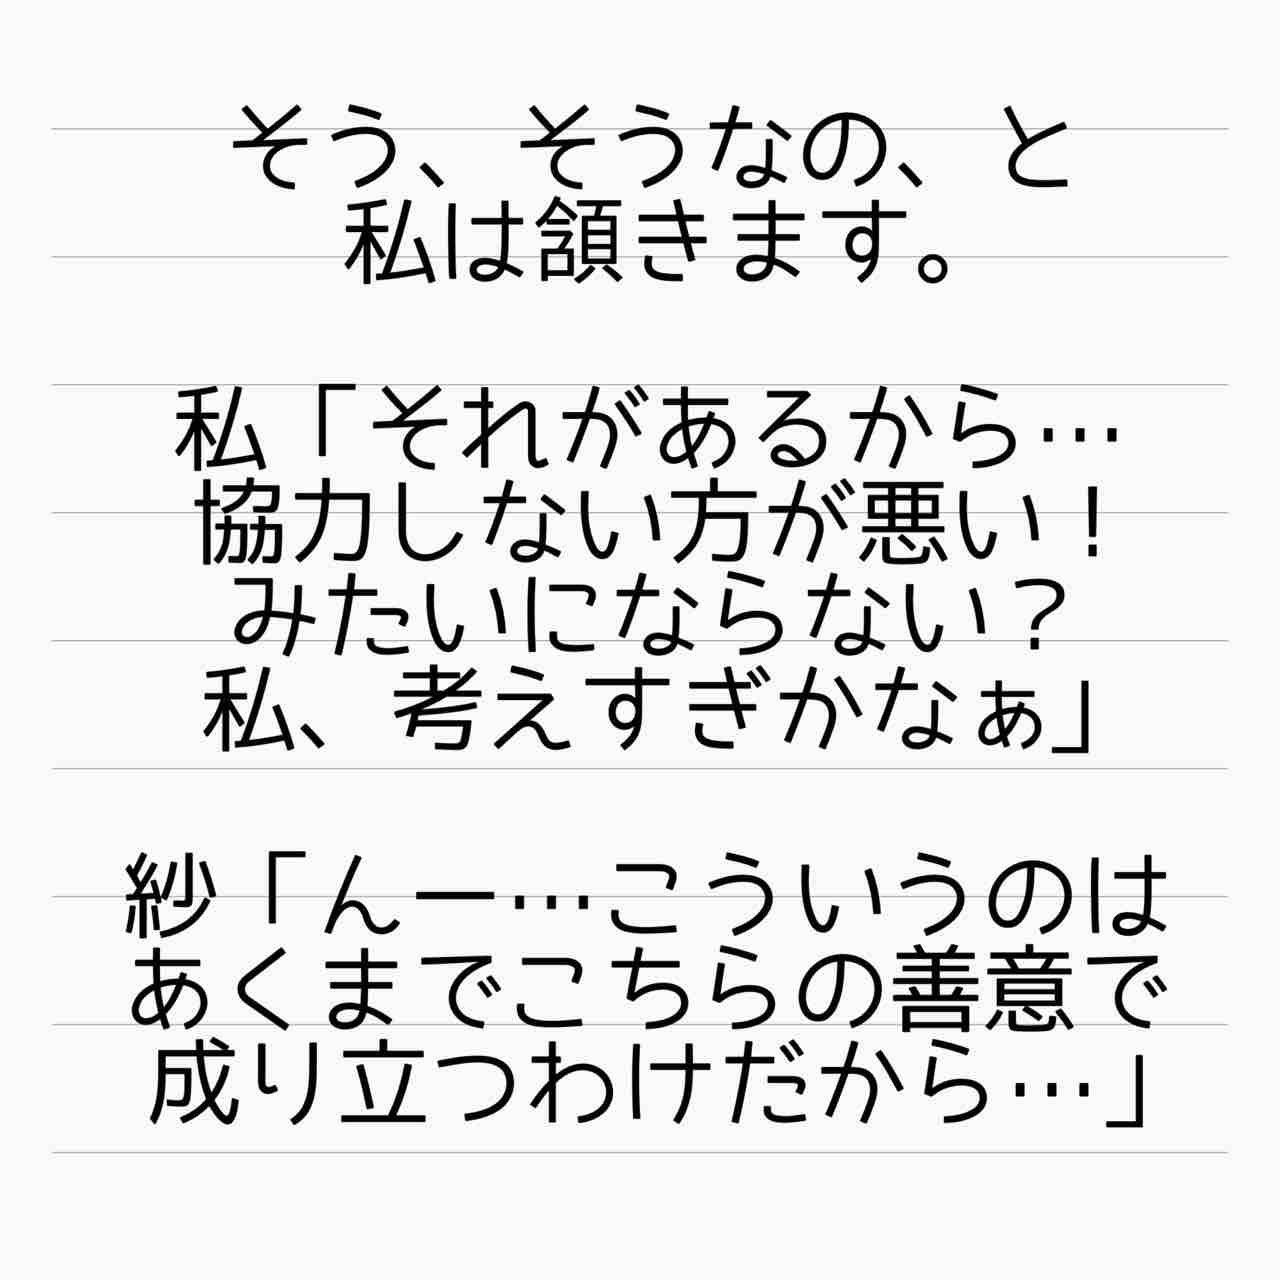 そう、そうなの、と
私は頷きます。
私「それがあるから…
協力しない方が悪い！
みたいにならない？
私、考えすぎかなぁ」
紗「んー…こういうのは
あくまでこちらの善意で
成り立つわけだから…」